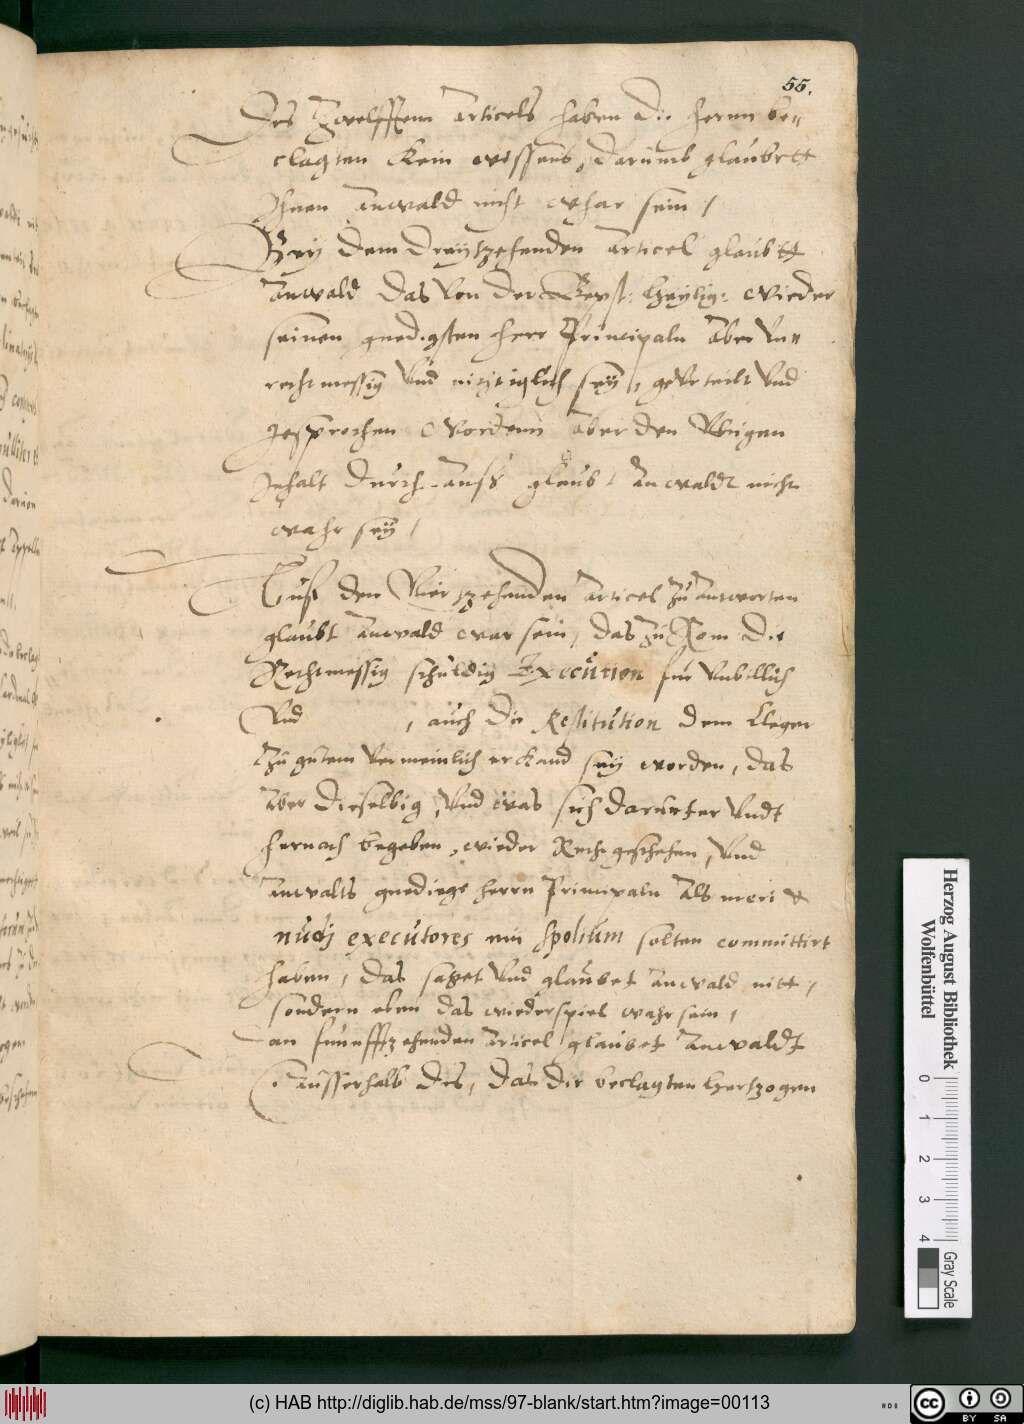 55.
Des Zwelfften Articels haben die herrn be=
clagten kein wissens, darumb glaubett
Ihnen Anwald nicht whar sein /
Bey dem Dreytzehenden Articel glaubtt
Anwald das von der Bepst: Heylig: wieder
seinen gnedigsten herr Principaln aber Un=
rechtmessig Und nichtiglich sey, geurteilt Und
gesprochen worden aber den Ubrigen
Inhalt durch auss glaubt Anwaldt nicht
wahr sey /
Auff den Viertzehenden Articel zu antworten
glaubt Anwald war sein, das zu Rom die
Rechtmessig schuldig Execution fur Unbillich
Und , auch die Restitution dem Cleger
zu gutem vermeinlich erckand sey worden, das
aber dieselbig, Und was sich darunter Undt
hernach begeben, wieder Recht geschehen, Und
Anwalts gnedige herrn Principaln Als meri et
nudj executores ein Spolium solten committirt
haben, das saget Und glaubet Anwald nitt,
sondern eben das wiederspiel wahr sein,
an funfftzehenden Articel glaubet Anwaldt
Ausserhalb des, das die beclagten Hertzogen
Herzog August Bibliothek
Wolfenbüttel
0 1 2 3 4
Gray Scale
(c) HAB http://diglib.hab.de/mss/97-blank/start.htm?image=00113
cc BY SA